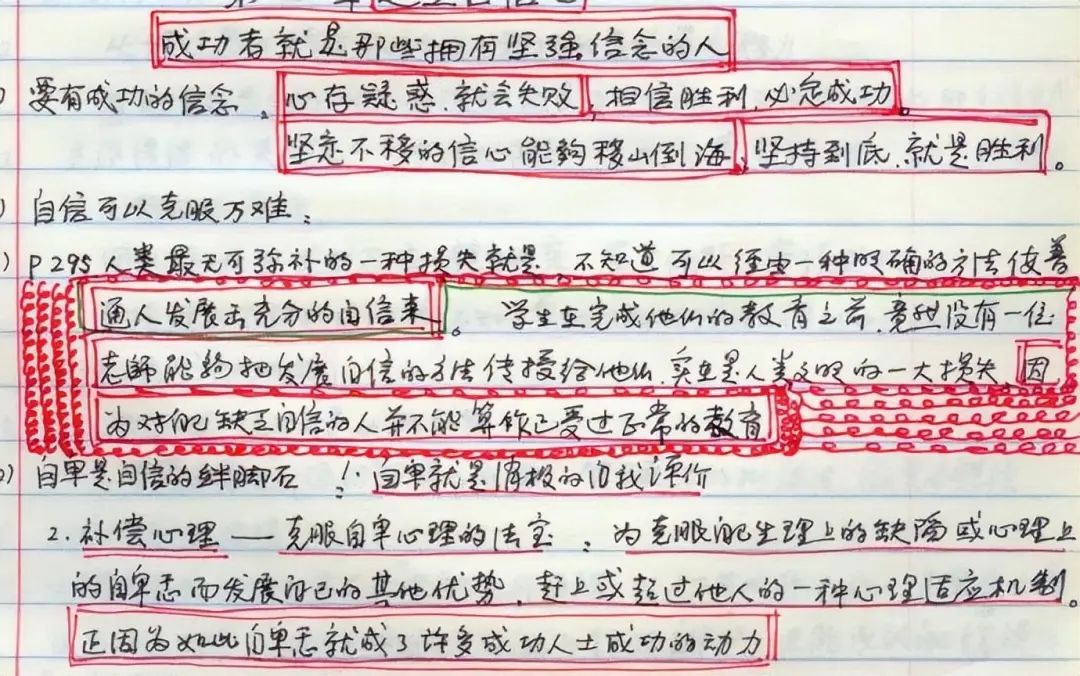 成功者就是那些拥有坚强信念的人
要有成功的信念:心存疑惑,就会失败;相信胜利,必定成功。
坚定不移的信心能够移山倒海;坚持到底,就是胜利。
自信可以克服万难:
P295人类最无可弥补的一种损失就是,不知道可以经由一种明确的方法使普
通人发展出充分的自信来。学生在完成他们的教育之前,竟然没有一位
老师能够把发展自信的方法传授给他们,实在是人类文明的一大损失,因
为对自己缺乏自信的人并不能算作已受过正常的教育
自卑是自信的绊脚石 1.自卑就是消极的自我评价
2.补偿心理——克服自卑心理的法宝:为克服自己生理上的缺陷或心理上
的自卑感而发展自己的其他优势,赶上或超过他人的一种心理适应机制。
正因为如此自卑感就成了许多成功人士成功的动力